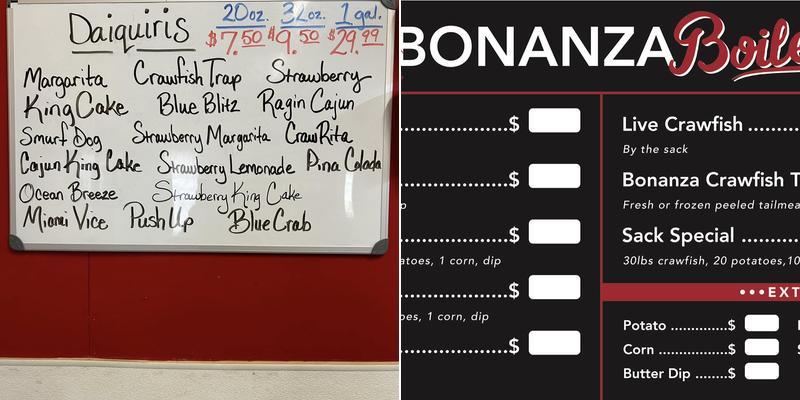 Daiquiris
20oz. 32oz. 1 gal.
$7.50 $9.50 $29.99
Margarita Crawfish Trap Strawberry
King Cake Blue Blitz Ragin Cajun
Smurf Dog Strawberry Margarita CrawRita
Cajun King Cake Strawberry Lemonade Pina Colada
Ocean Breeze Strawberry King Cake
Miami Vice Push Up Blue Crab
BONANZA Boile
$
$
p
$
atoes, 1 corn, dip
$
oes, 1 corn, dip
$
Live Crawfish
By the sack
Bonanza Crawfish T
Fresh or frozen peeled tailmea
Sack Special
30lbs crawfish, 20 potatoes,10
•••EXT
Potato ..............$
Corn ................$
Butter Dip ........$